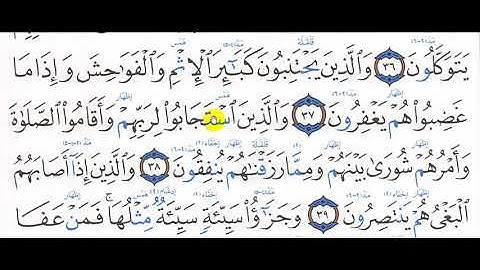 يَتَوَكَّلُونَ ٣٦ وَٱلَّذِينَ يَجْتَنِبُونَ كَبَٰٓئِرَ ٱلْإِثْمِ وَٱلْفَوَٰحِشَ وَإِذَا مَا
غَضِبُوا۟ هُمْ يَغْفِرُونَ ٣٧ وَٱلَّذِينَ ٱسْتَجَابُوا۟ لِرَبِّهِمْ وَأَقَامُوا۟ ٱلصَّلَوٰةَ
وَأَمْرُهُمْ شُورَىٰ بَيْنَهُمْ وَمِمَّا رَزَقْنَٰهُمْ يُنفِقُونَ ٣٨ وَٱلَّذِينَ إِذَآ أَصَابَهُمُ
ٱلْبَغْىُ هُمْ يَنتَصِرُونَ ٣٩ وَجَزَٰٓؤُا۟ سَيِّئَةٍ سَيِّئَةٌ مِّثْلُهَا ۖ فَمَنْ عَفَا